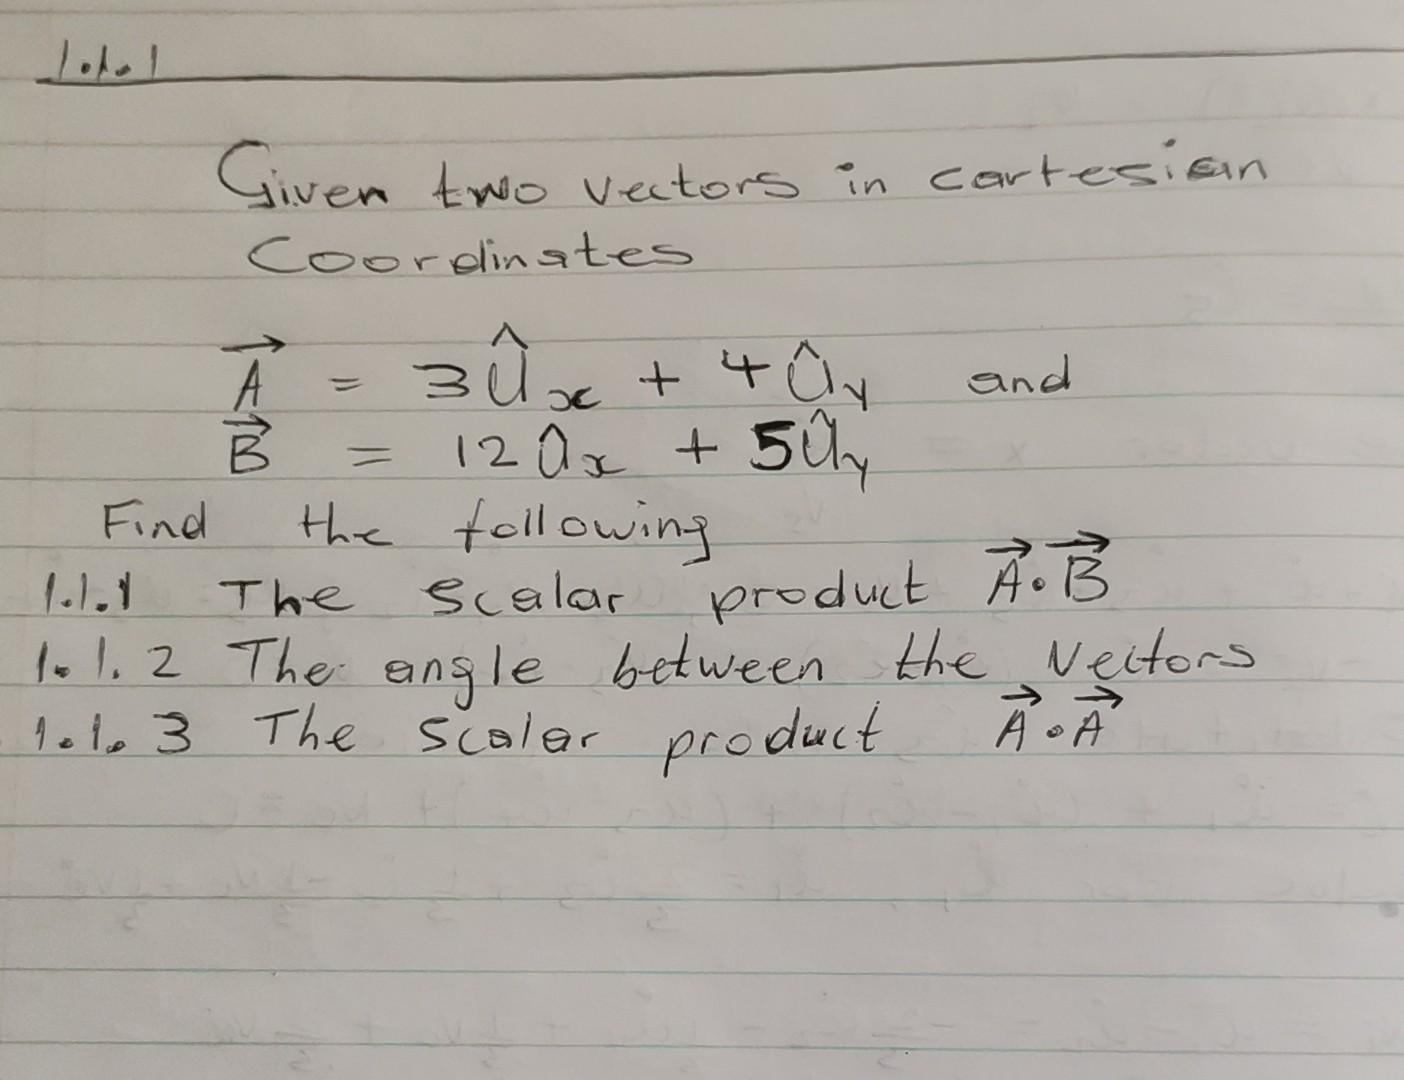 1.1.1
Given two vectors in cartesian
Coordinates
A⃗ = 3Û_x + 4Û_y and
B⃗ = 12Û_x + 5Û_y
Find the following
1.1.1 The scalar product A⃗·B⃗
1.1.2 The angle between the vectors
1.1.3 The scalar product A⃗·A⃗